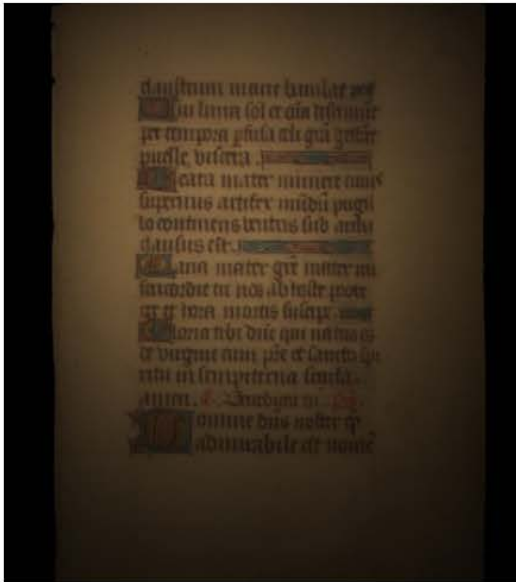 claustrum marie baiulat
ui luna sol et oīa deseruiūt
per tempora ꝑfusa celi grā gestāt
puelle viscera
eata mater munere cuius
supernus artifex mūdū pugil
lo continens ventris sub archa
clausus est.
aria mater grē mater mi
sericordie tu nos ab hoste prote
ge et hora mortis suscipe.
loria tibi dn̄e qui natus es
de virgine cum pr̄e et sancto spi
ritu in sempiterna secula.
amen. Benedicta tu. 
Domine dn̄s noster qͣ
admirabile est nomē